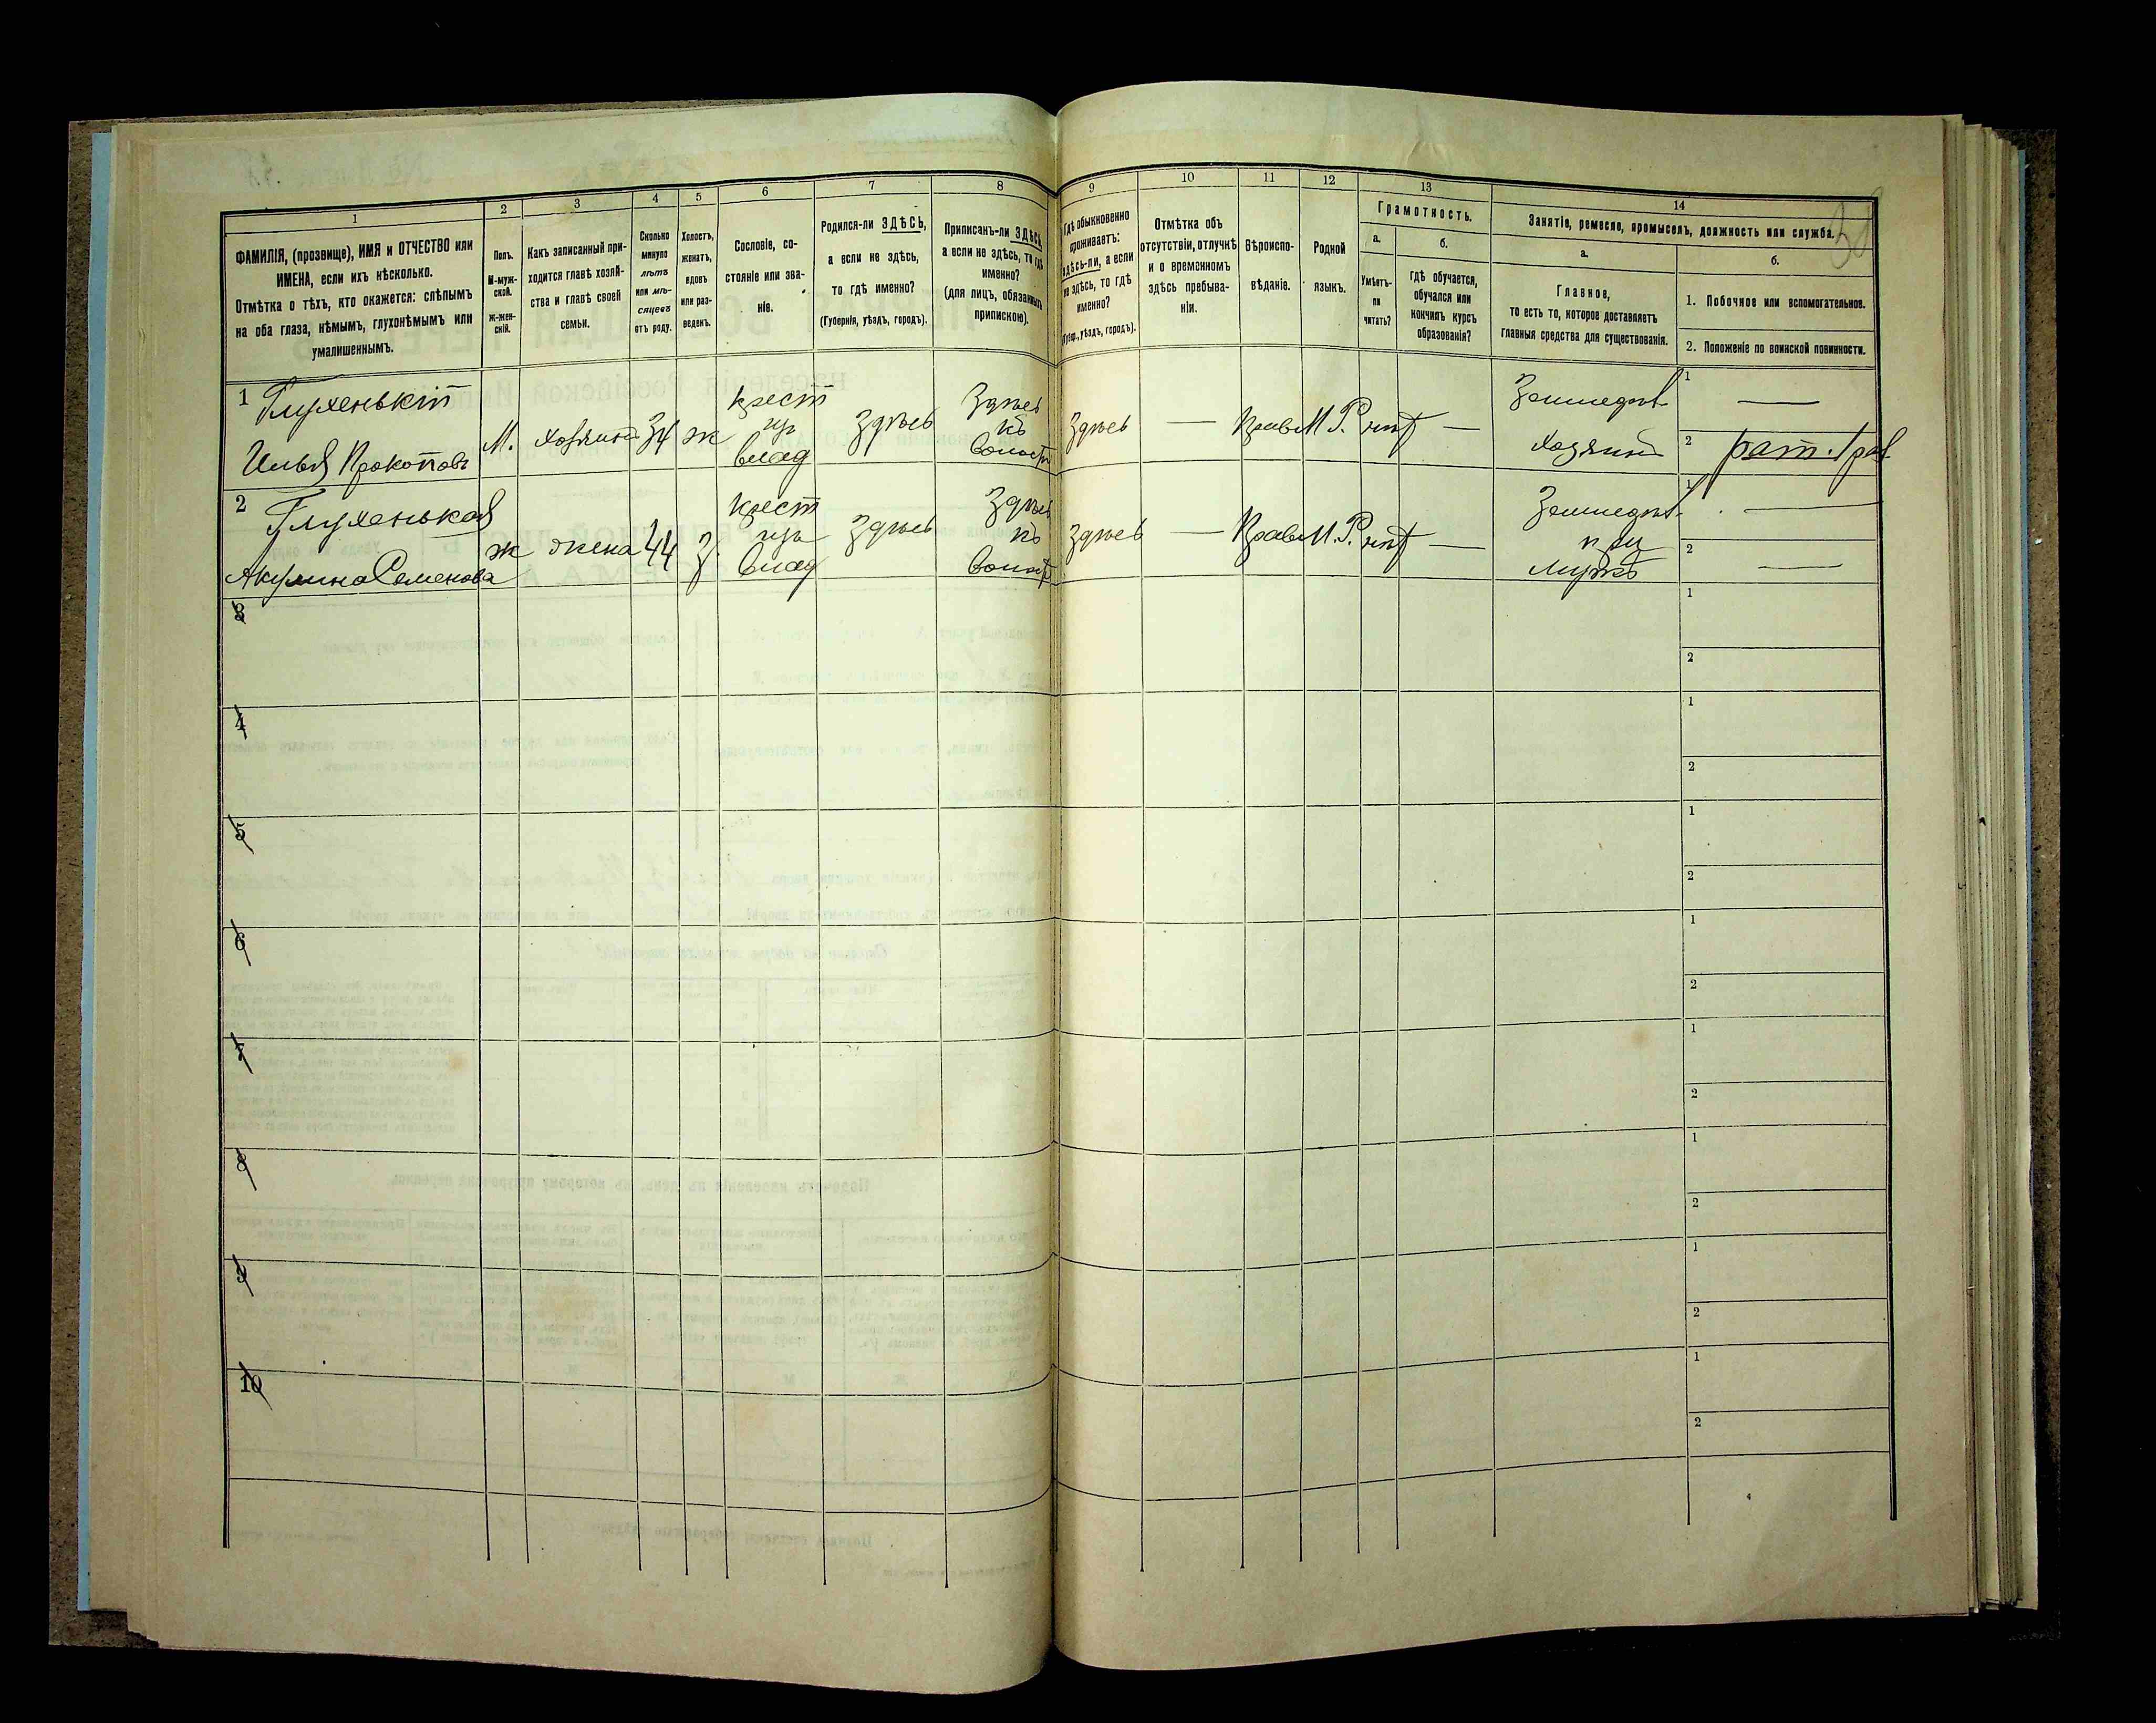 38
1
2
3
4
5
6
7
8
9
10
11
12
13
14
ФАМИЛІЯ, (прозвище), ИМЯ и ОТЧЕСТВО или
ИМЕНА, если ихъ нѣсколько.
Отмѣтка о тѣхъ, кто окажется: слѣпымъ
на оба глаза, нѣмымъ, глухонѣмымъ или
умалишеннымъ.
Полъ.
М-муж-
ской.
Ж-жен-
скій.
Какъ записанный при-
ходится главѣ хозяй-
ства и главѣ своей
семьи.
Сколько
минуло
лѣтъ
или мѣ-
сяцевъ
отъ роду.
Холостъ,
женатъ,
вдовъ
или раз-
веденъ.
Сословіе, со-
стояніе или зва-
ніе.
Родился-ли ЗДѢСЬ,
а если не здѣсь,
то гдѣ именно?
(Губернія, уѣздъ, городъ).
Приписанъ-ли ЗДѢСЬ,
а если не здѣсь, то гдѣ
именно?
(для лицъ, обязанныхъ
припискою).
Гдѣ обыкновенно
проживаетъ:
здѣсь-ли, а если
не здѣсь, то гдѣ
именно?
(Губер., уѣздъ, городъ).
Отмѣтка объ
отсутствіи, отлучкѣ
и о временномъ
здѣсь пребыва-
ніи.
Вѣроиспо-
вѣданіе.
Родной
языкъ.
Грамотность.
а.
Умѣетъ-
ли
читать?
б.
гдѣ обучается,
обучался или
кончилъ курсъ
образованія?
Занятіе, ремесло, промыселъ, должность или служба.
а.
Главное,
то есть то, которое доставляетъ
главныя средства для существованія.
б.
1. Побочное или вспомогательное.
2. Положеніе по воинской повинности.
1 Глухенькій
Илья Прокоповъ
М.
хозяинъ
34
ж
крест
изъ
влад
Здѣсь
Здѣсь
къ
волост
Здѣсь
—
Прав
М. Р.
нѣт
—
Земледѣл.
Хозяинъ
1 —
2 рат. 1 раз.
2 Глухенькая
Акулина Семенова
ж
жена
44
З.
крест
изъ
влад
Здѣсь
Здѣсь
къ
волост
Здѣсь
—
Прав
М. Р.
нѣт
—
Земледѣл.
при
мужѣ
1 —
2 —
3
1
2
4
1
2
5
1
2
6
1
2
7
1
2
8
1
2
9
1
2
10
1
2
4